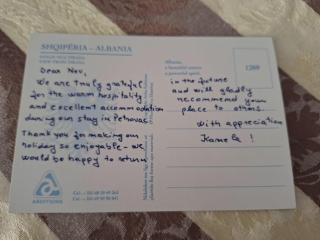 SHQIPËRIA - ALBANIA
Dear Nev,
We are truly grateful
for the warm hospitality
and excellent accommodation
during our stay in Petrovac.
Thank you for making our
holiday so enjoyable - we
would be happy to return
Albania,
a beautiful nature
a powerful spirit.
1269
in the future
and will gladly
recommend your
place to others.
With appreciation